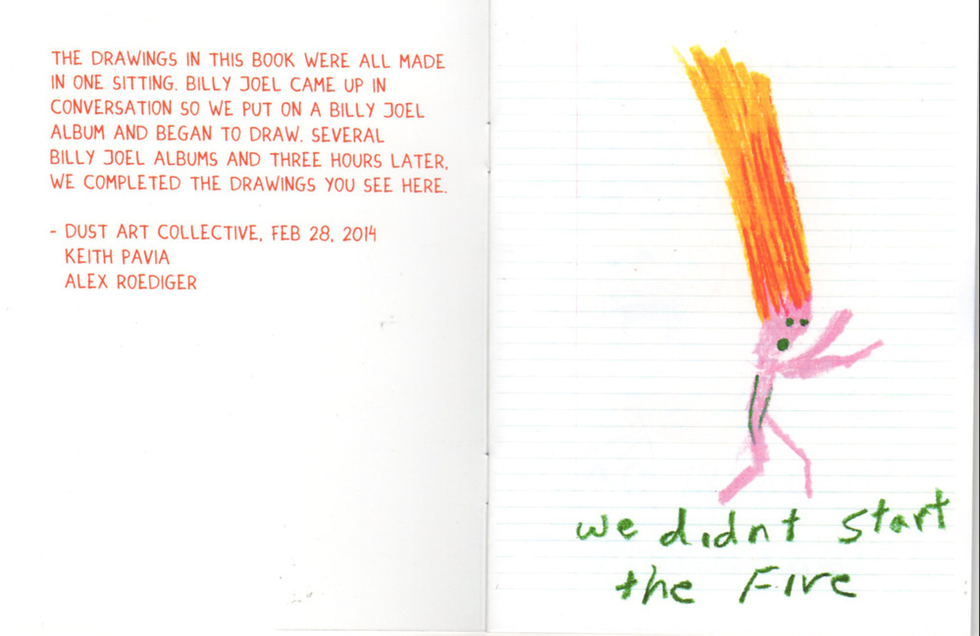 THE DRAWINGS IN THIS BOOK WERE ALL MADE
IN ONE SITTING. BILLY JOEL CAME UP IN
CONVERSATION SO WE PUT ON A BILLY JOEL
ALBUM AND BEGAN TO DRAW. SEVERAL
BILLY JOEL ALBUMS AND THREE HOURS LATER,
WE COMPLETED THE DRAWINGS YOU SEE HERE.
- DUST ART COLLECTIVE, FEB 28, 2014
KEITH PAVIA
ALEX ROEDIGER
we didnt start
the Fire